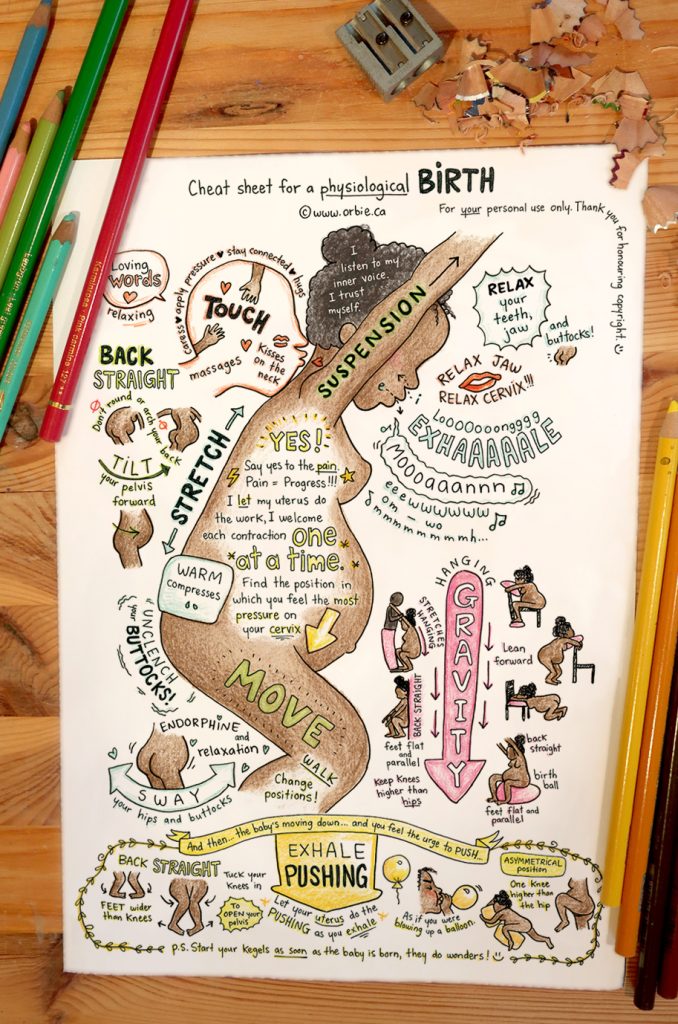 Cheat sheet for a physiological BiRTH
©www.orbie.ca
For your personal use only. Thank you for honouring copyright.
Loving
WORDS
relaxing
caress ♥ apply pressure ♥ stay connected ♥ hugs
TOUCH
massages
Kisses
on the
neck
I
listen to my
inner voice.
I trust
myself.
SUSPENSION
RELAX
your
teeth,
jaw
and
buttocks!
RELAX JAW
RELAX CERVIX!!!
LoooOoongggg
EXHAAAAALE
MOOOaaannn
eeewwwwwww
om – wo
mmmmmmmmh...
BACK
STRAIGHT
Don't round or arch your back
TILT
your pelvis
forward
STRETCH
YES!
Say yes to the pain.
Pain = Progress!!!
I let my uterus do
the work, I welcome
each contraction one
at a time.
Find the position in
which you feel the most
pressure on
your cervix
WARM
compresses
UNCLENCH
your BUTTOCKS!
MOVE
WALK
Change
positions!
ENDORPHINE
and
relaxation
SWAY
your hips and buttocks
HANGING
GRAVITY
STRETCHES
HANGING
Lean
forward
BACK STRAIGHT
feet flat
and
parallel
Keep Knees
higher than
hips
back
straight
birth
ball
feet flat and
parallel
And then... the baby's moving down... and you feel the urge to PUSH...
EXHALE
PUSHING
Let your uterus do the
PUSHING as you exhale
BACK STRAIGHT
FEET wider
than Knees
Tuck your
Knees in
TO
OPEN your
pelvis
As if you were
blowing up a balloon.
ASYMMETRICAL
position
One Knee
higher than
the hip
p.s. Start your Kegels as soon as the baby is born, they do wonders!